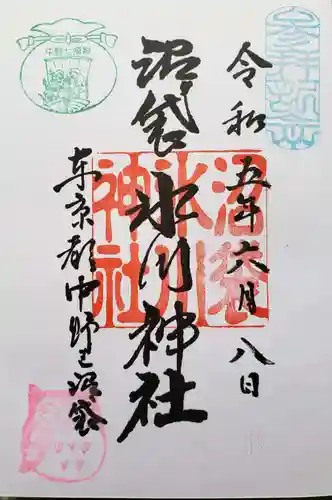 令和五年六月八日
沼袋氷川神社
沼袋
氷川
神社
東京都中野区沼袋
中野七福神